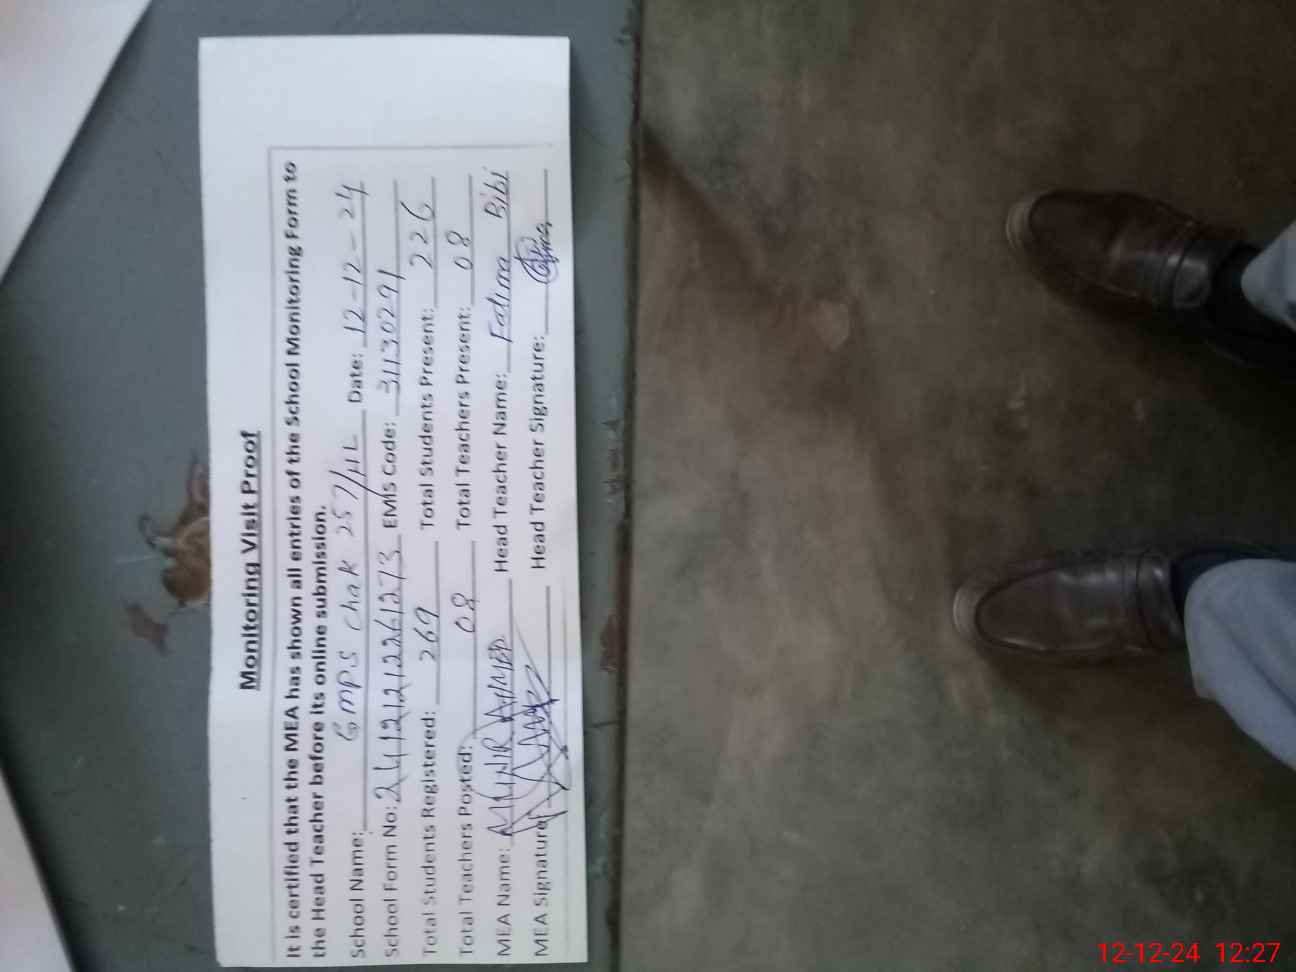 Monitoring Visit Proof
It is certified that the MEA has shown all entries of the School Monitoring Form to
the Head Teacher before its online submission.
School Name: GMPS Chak 257/HL Date: 12-12-24
School Form No: 241121212261273 EMIS Code: 31130291
Total Students Registered: 269 Total Students Present: 226
Total Teachers Posted: 08 Total Teachers Present: 08
MEA Name: MUNIR AHMED Head Teacher Name: Fatima Bibi
MEA Signature: Head Teacher Signature:
12-12-24 12:27